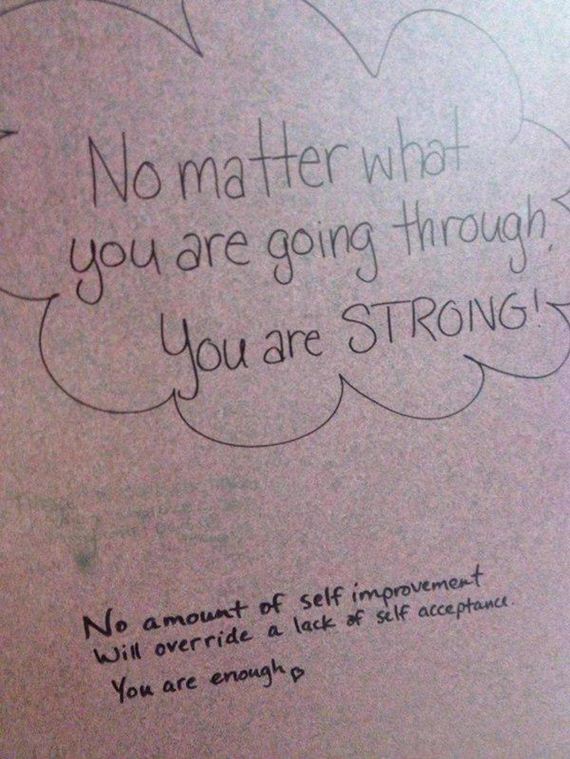 No matter what
you are going through,
You are STRONG!
No amount of self improvement
Will override a lack of self acceptance.
You are enough